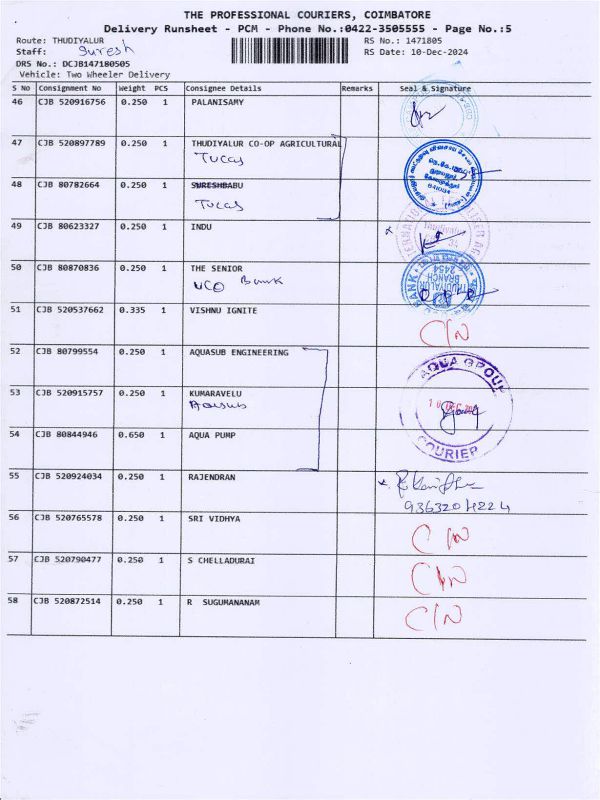 THE PROFESSIONAL COURIERS, COIMBATORE
Delivery Runsheet - PCM - Phone No.:0422-3505555 - Page No.:5
Route: THUDIYALUR RS No.: 1471805
Staff: Suresh RS Date: 10-Dec-2024
DRS No.: DCJB147180505
Vehicle: Two Wheeler Delivery
S No Consignment No Weight PCS Consignee Details Remarks Seal & Signature
46 CJB 520916756 0.250 1 PALANISAMY
47 CJB 520897789 0.250 1 THUDIYALUR CO-OP AGRICULTURAL
Tucas
48 CJB 80782664 0.250 1 SURESHBABU
Tucas
641034
49 CJB 80623327 0.250 1 INDU
50 CJB 80870836 0.250 1 THE SENIOR
UCO Bank
BANK THUDIYALUR BRANCH 2454
51 CJB 520537662 0.335 1 VISHNU IGNITE C/N
52 CJB 80799554 0.250 1 AQUASUB ENGINEERING
AQUA GROUP
53 CJB 520915757 0.250 1 KUMARAVELU
Aquasub
COURIER
54 CJB 80844946 0.650 1 AQUA PUMP
55 CJB 520924034 0.250 1 RAJENDRAN
9363204224
56 CJB 520765578 0.250 1 SRI VIDHYA C/N
57 CJB 520790477 0.250 1 S CHELLADURAI C/N
58 CJB 520872514 0.250 1 R SUGUMANANAM C/N